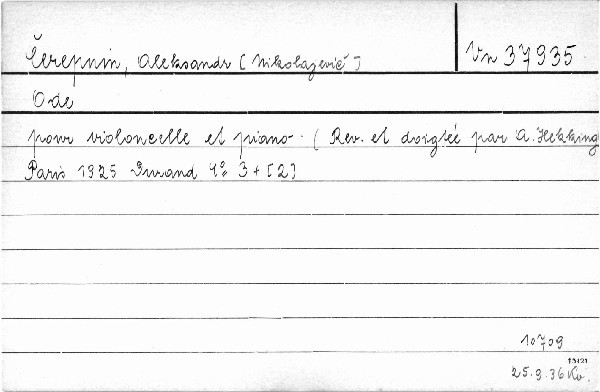 Čerepnin, Aleksandr [Nikolajevič]
Vn 37935
Ode
pour violoncelle et piano. (Rev. et doigtée par A. Hekking
Paris 1925 Durand 4° 3 + [2]
10709
13121
25.9.36 Kv.